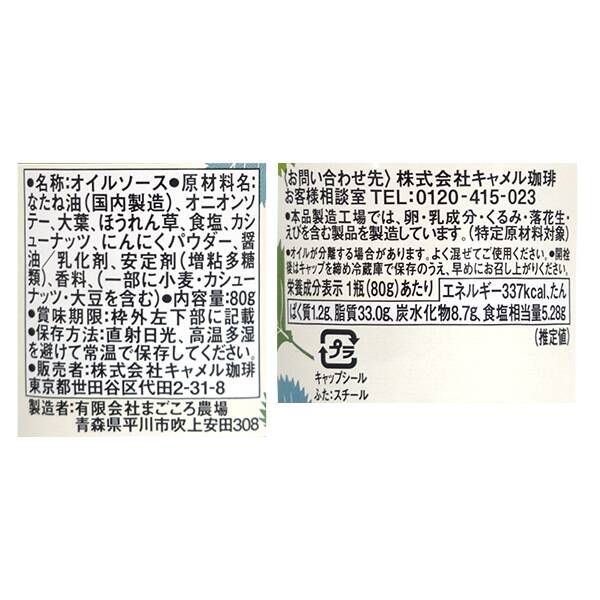 ●名称:オイルソース●原材料名:
なたね油(国内製造)、オニオンソ
テー、大葉、ほうれん草、食塩、カシ
ューナッツ、にんにくパウダー、醤
油/乳化剤、安定剤(増粘多糖
類)、香料、(一部に小麦・カシュー
ナッツ・大豆を含む)●内容量:80g
●賞味期限:枠外左下部に記載
●保存方法:直射日光、高温多湿
を避けて常温で保存してください。
●販売者:株式会社キャメル珈琲
東京都世田谷区代田2-31-8
製造者:有限会社まごころ農場
青森県平川市吹上安田308
〈お問い合わせ先〉株式会社キャメル珈琲
お客様相談室TEL:0120-415-023
●本品製造工場では、卵・乳成分・くるみ・落花生・
えびを含む製品を製造しています。(特定原材料対象)
●オイルが分離する場合があります。よく混ぜてご使用ください。●開栓
後はキャップを締め冷蔵庫で保存のうえ、早めにお召し上がりください。
栄養成分表示1瓶(80g)あたり エネルギー337kcal、たん
ぱく質1.2g、脂質33.0g、炭水化物8.7g、食塩相当量5.28g
(推定値)
プラ
キャップシール
ふた:スチール